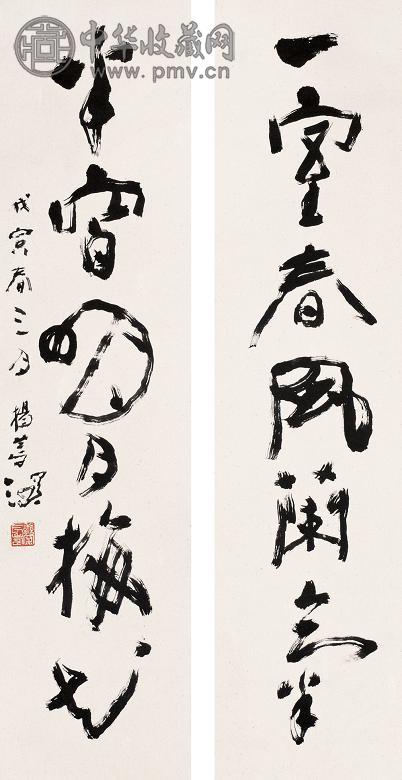 中华收藏网
www.pmv.cn
一室春風蘭氣
半窗明月梅花
戊寅春三月 楊善深